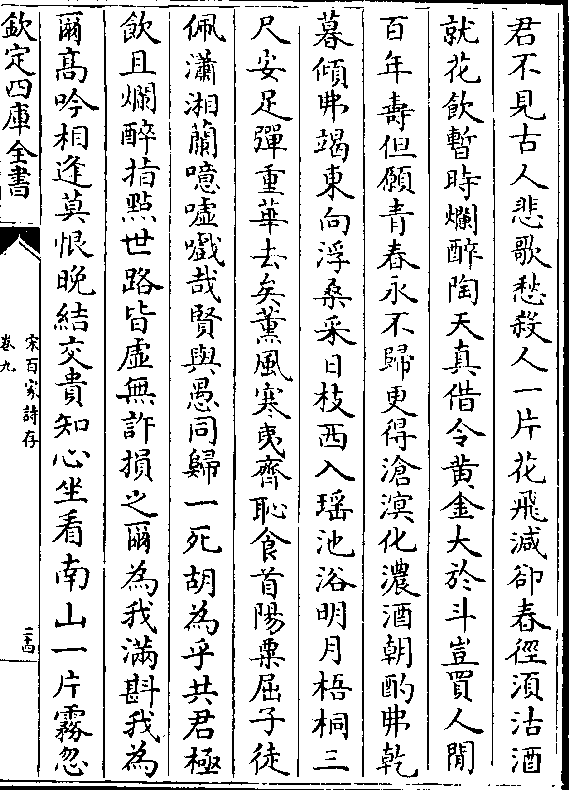 君不見古人悲歌愁殺人一片花飛減卻春徑須沽酒
就花飲暫時爛醉陶天真借令黄金大於斗豈買人閒
百年壽但願青春永不歸更得滄溟化濃酒朝酌弗乾
暮傾弗竭東向浮桑采日枝西入瑶池浴明月梧桐三
尺安足彈重華去矣薰風寒夷齊恥食首陽粟屈子徒
佩瀟湘蘭噫嘘嚱哉賢與愚同歸一死胡為乎共君極
飲且爛醉指點世路皆虚無許損之爾為我滿斟我為
爾髙吟相逢莫恨晚結交貴知心坐看南山一片霧忽
欽定四庫全書
宋百家詩存
卷九
二十四